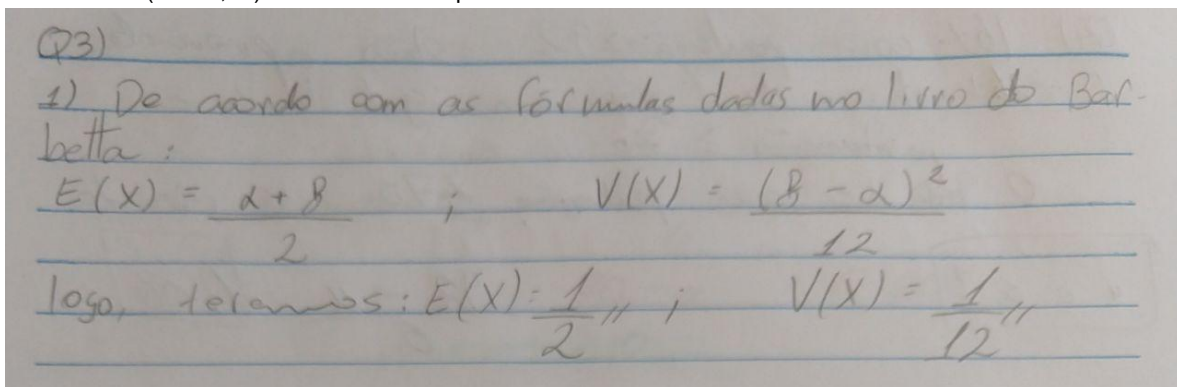 Q3)
1) De acordo com as fórmulas dadas no livro do Bar-
betta:
E(X) = α + β / 2 ; V(X) = (β - α)² / 12
logo, teramos: E(X) = 1/2 // ; V(X) = 1/12 //